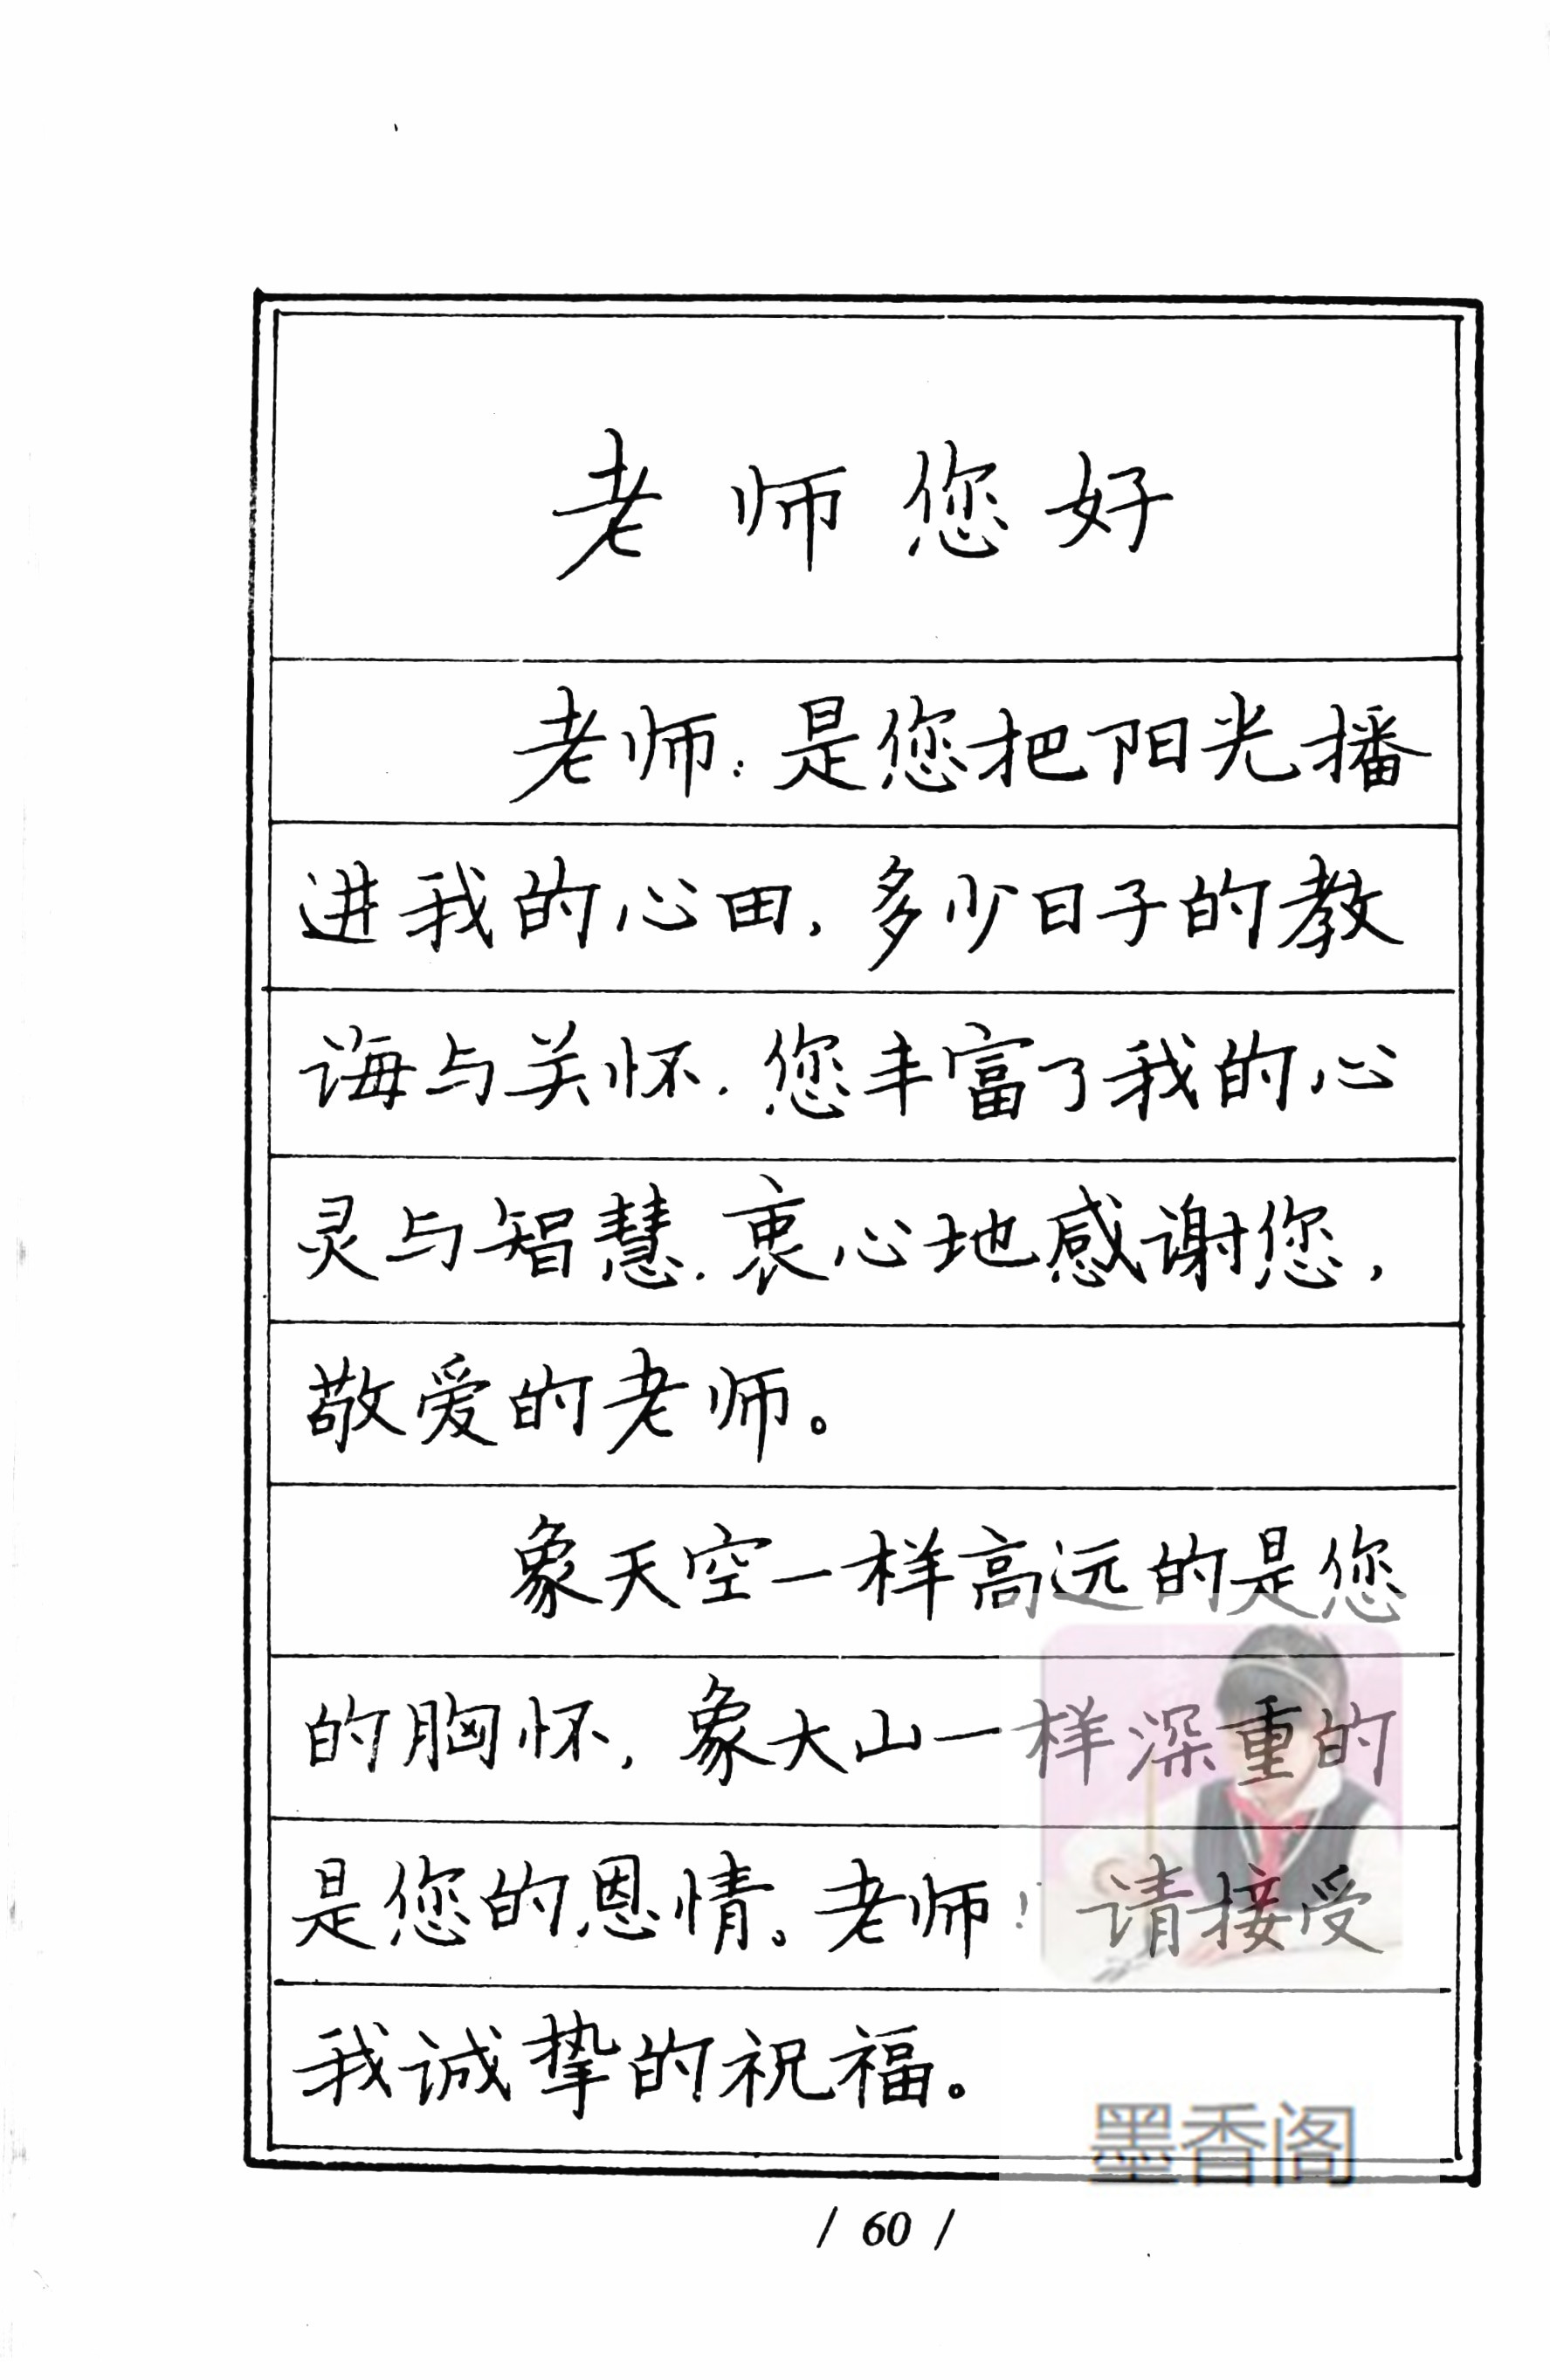 老师您好
老师:是您把阳光播
进我的心田,多少日子的教
诲与关怀.您丰富了我的心
灵与智慧.衷心地感谢您,
敬爱的老师。
象天空一样高远的是您
的胸怀,象大山一样深重的
是您的恩情。老师!请接受
我诚挚的祝福。
墨香阁
/ 60 /